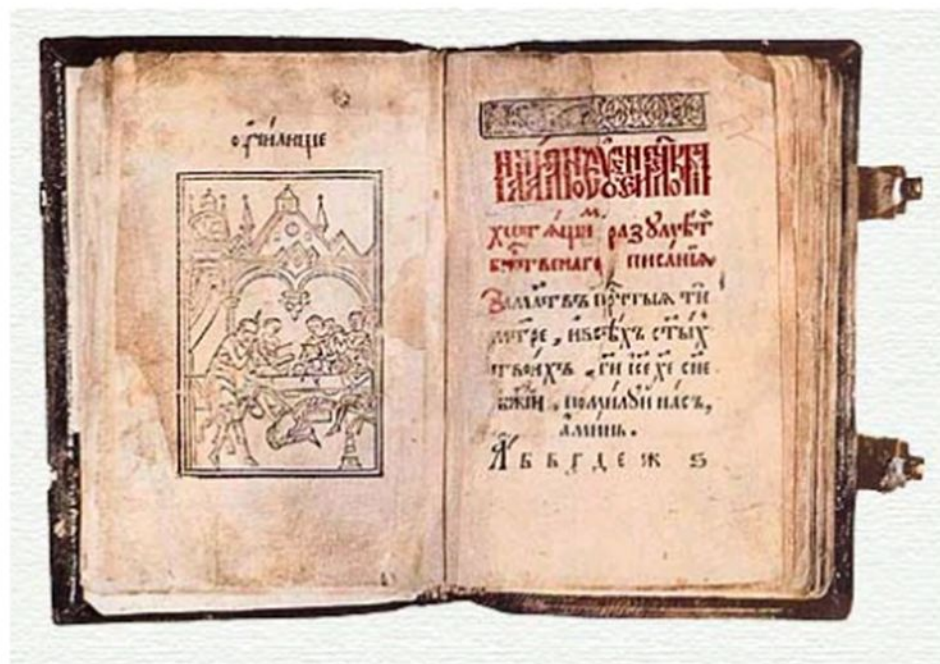 оучи́лище
хотѧ́щимъ разꙋмѣ́ти
бж҃твенаго писа́нїѧ
За мл҃твъ прⷱ҇тыѧ ти
мт҃ре , и всѣ́хъ ст҃ы́хъ
твои́хъ , гд҃и їсе хе сн҃е
бж҃їи , поми́лꙋй на́съ,
а́минь.
А б в г д е ж ѕ